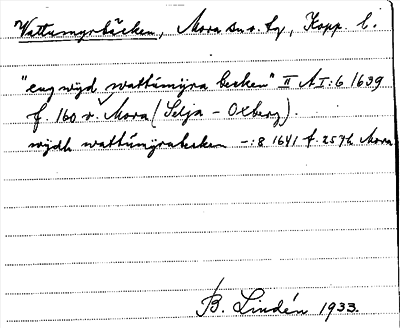 Vattumyrbäcken, Mora sn o. tg, Kopp. l.
"eng wijd wattůmÿra becken" II A I: 6 1639
f. 160 v. Mora (Selja – Oxberg).
wijdh wattůmÿrabecken –:8 1641 f. 257 v. Mora
B. Lindén 1933.